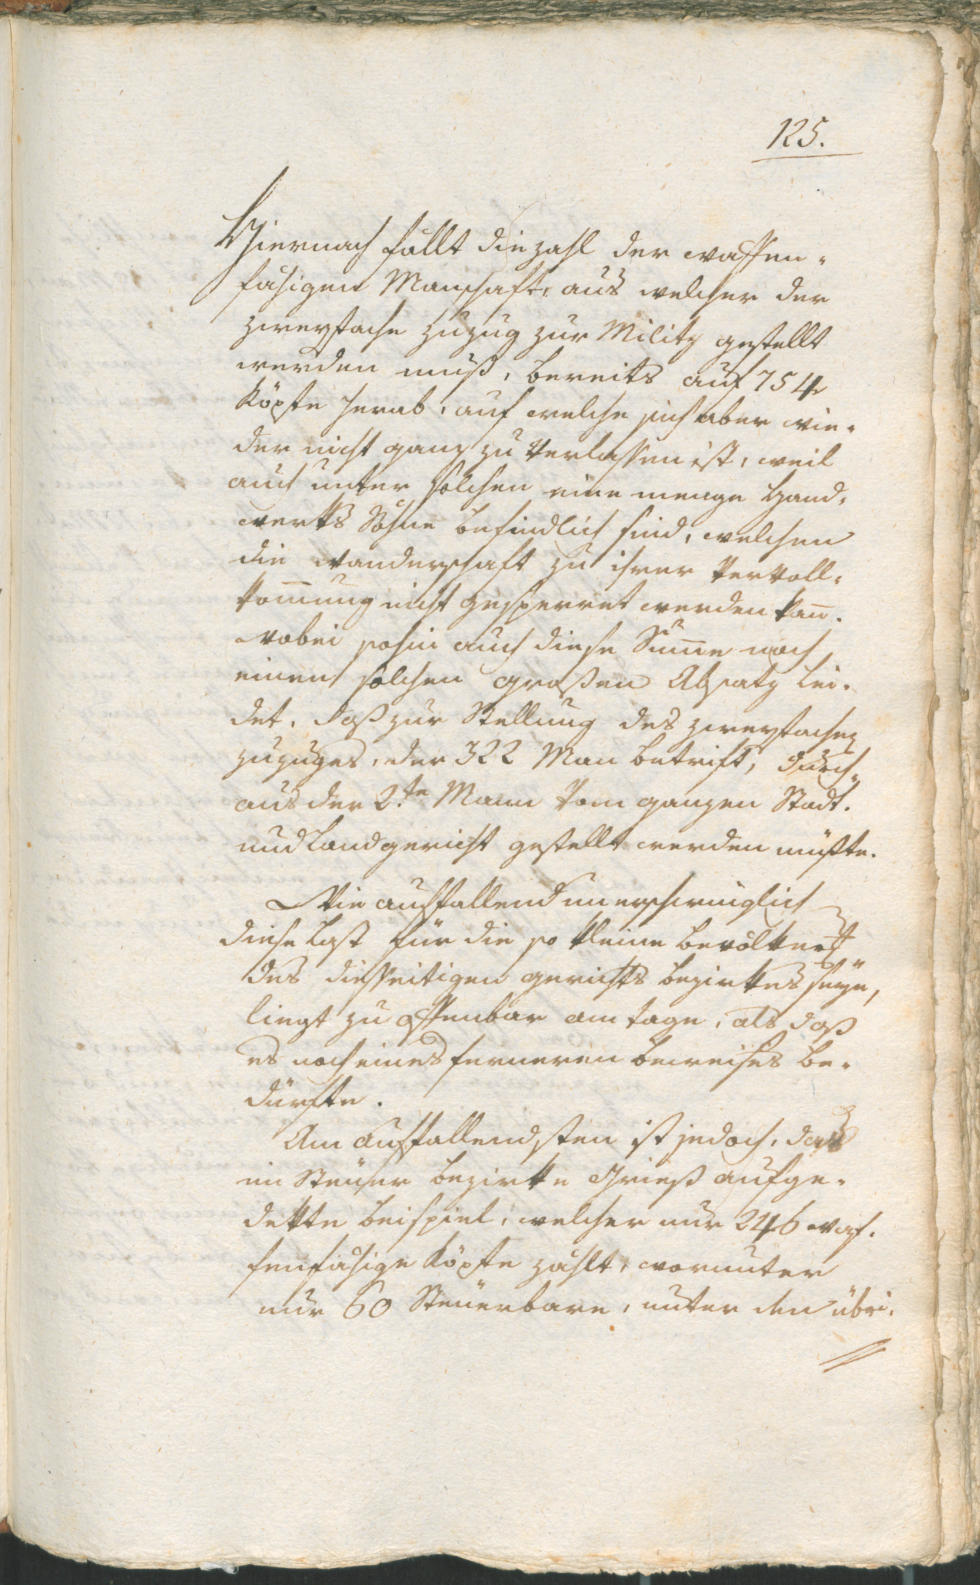 125.
Hiernach fällt die zahl der waffen-
fähigen Manschaft, aus welcher der
zweyfache Zuzug zur Militz gestellt
werden muß, bereits auf 754
Köpfe herab, auf welche sich aber wie-
der nicht ganz zu verlassen ist, weil
auch unter solchen eine menge Hand-
werks Söhne befindlich sind, welchen
die Wanderschaft zu ihrer Vervoll-
kom̄nung nicht gesperret werden kan̄.
wobei sohin auch diese Sum̄e noch
einen solchen großen Absatz lei-
det, daß zur Stellung des zweyfachen
zuzuges, der 322 Man betrift, durch-
aus der 2.te Mann vom ganzen Stadt-
und Landgericht gestellt werden müßte.
Wie auffallend unerschwinglich
diese Last für die so kleine bevölkerg
des diesseitigen gerichts bezirkes seye,
liegt zu offenbar am tage, als daß
es noch eines ferneren beweises be-
dürfte.
Am auffallendsten ist jedoch, das
im Steuer bezirke Grieß aufge-
dekte beispiel, welcher nur 246 waf-
fenfähige Köpfe zählt, worunter
nur 60 Steuerbare, unter den übri-